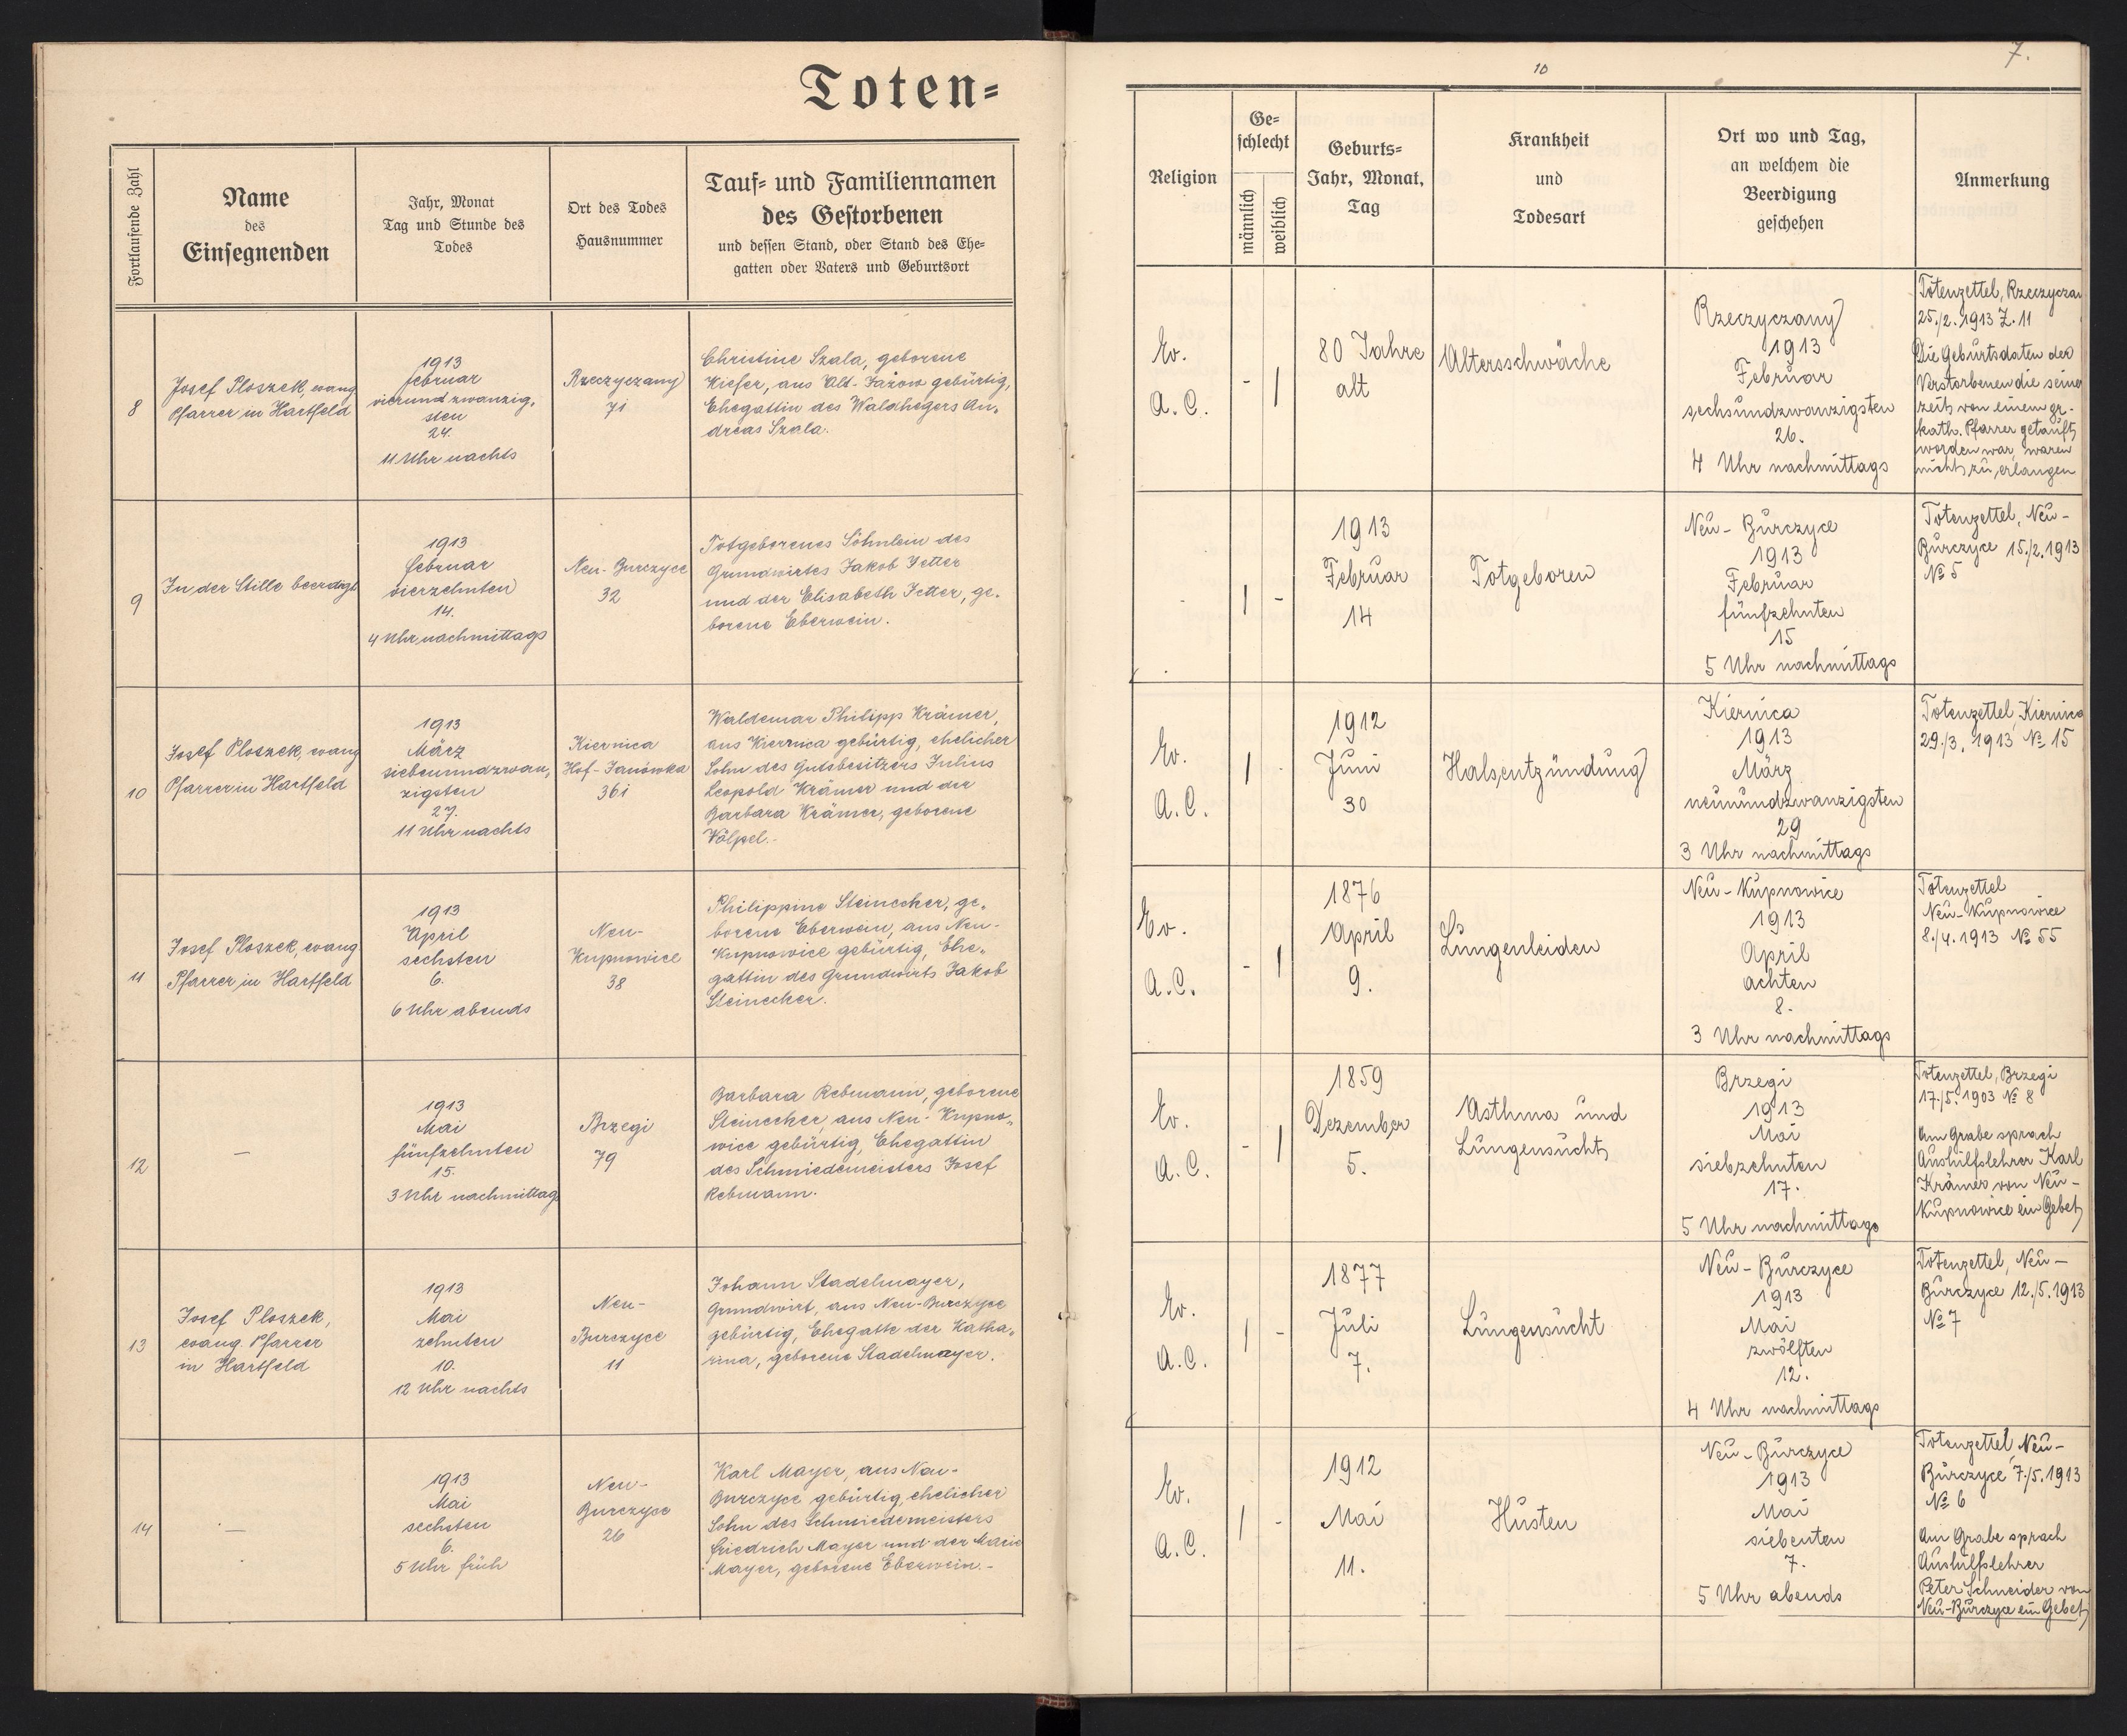 Toten=
7.
10
Fortlaufende Zahl
Name
des
Einsegnenden
Jahr, Monat
Tag und Stunde des
Todes
Ort des Todes
Hausnummer
Tauf= und Familiennamen
des Gestorbenen
und dessen Stand, oder Stand des Ehe=
gatten oder Vaters und Geburtsort
Religion
Ge=
schlecht
männlich
weiblich
Geburts=
Jahr, Monat,
Tag
Krankheit
und
Todesart
Ort wo und Tag,
an welchem die
Beerdigung
geschehen
Anmerkung
8
Josef Ploszek, evang
Pfarrer in Hartfeld
1913
Februar
vierundzwanzig-
sten
24.
11 Uhr nachts
Rzeczyczany
71
Christine Szala, geborene
Kiefer, aus Alt-Jazow gebürtig,
Ehegattin des Waldhegers An-
dreas Szala.
Ev.
A.C.
- 1
80 Jahre
alt
Altersschwäche
Rzeczyczany
1913
Februar
sechsundzwanzigsten
26.
4 Uhr nachmittags
Totenzettel, Rzeczyczan
25./2. 1913 Z. 11
Die Geburtsdaten der
Verstorbenen die seiner
zeit von einem gr.-
kath. Pfarrer getauft
worden war, waren
nicht zu erlangen
9
In der Stille beerdigt
1913
Februar
vierzehnten
14.
4 Uhr nachmittags
Neu-Burczyce
32
Totgeborenes Söhnlein des
Grundwirtes Jakob Jetter
und der Elisabeth Jetter, ge-
borene Eberwein.
-
1 -
1913
Februar
14
Totgeboren
Neu-Burczyce
1913
Februar
fünfzehnten
15
5 Uhr nachmittags
Totenzettel, Neu-
Burczyce 15./2. 1913
№ 5
10
Josef Ploszek, evang
Pfarrer in Hartfeld
1913
März
siebenundzwan-
zigsten
27.
11 Uhr nachts
Kiernica
Hof-Janówka
361
Waldemar Philipp Krämer,
aus Kiernica gebürtig, ehelicher
Sohn des Gutsbesitzers Julius
Leopold Krämer und der
Barbara Krämer, geborene
Wölpel.-
Ev.
A.C.
1 -
1912
Juni
30
Halsentzündung
Kiernica
1913
März
neunundzwanzigsten
29
3 Uhr nachmittags
Totenzettel, Kiernica
29./3. 1913 № 15
11
Josef Ploszek, evang
Pfarrer in Hartfeld
1913
April
sechsten
6.
6 Uhr abends
Neu-
Kupnowice
38
Philippine Steinecker, ge-
borene Eberwein, aus Neu-
Kupnowice gebürtig, Ehe-
gattin des Grundwirts Jakob
Steinecker.
Ev.
A.C.
- 1
1876
April
9.
Lungenleiden
Neu-Kupnowice
1913
April
achten
8.
3 Uhr nachmittags
Totenzettel
Neu-Kupnowice
8./4. 1913 № 55
12
—
1913
Mai
fünfzehnten
15.
3 Uhr nachmittag
Brzegi
79
Barbara Rebmann, geborene
Steinecker, aus Neu-Kupno-
wice gebürtig, Ehegattin
des Schmiedemeisters Josef
Rebmann.
Ev.
A.C.
- 1
1859
Dezember
5.
Asthma und
Lungensucht
Brzegi
1913
Mai
siebzehnten
17.
5 Uhr nachmittags
Totenzettel, Brzegi
17./5. 1903 № 8
Am Grabe sprach
Aushilfslehrer Karl
Krämer von Neu-
Kupnowice ein Gebet
13
Josef Ploszek,
evang. Pfarrer
in Hartfeld
1913
Mai
zehnten
10.
12 Uhr nachts
Neu-
Burczyce
11
Johann Stadelmayer,
Grundwirt, aus Neu-Burczyce
gebürtig, Ehegatte der Katha-
rina, geborene Stadelmayer.
Ev.
A.C.
1 -
1877
Juli
7.
Lungensucht
Neu-Burczyce
1913
Mai
zwölften
12.
4 Uhr nachmittags
Totenzettel, Neu-
Burczyce 12./5. 1913
№ 7
14
—
1913
Mai
sechsten
6.
5 Uhr früh
Neu-
Burczyce
26
Karl Mayer, aus Neu-
Burczyce gebürtig, ehelicher
Sohn des Schmiedemeisters
Friedrich Mayer und der Marie
Mayer, geborene Eberwein.-
Ev.
A.C.
1 -
1912
Mai
11.
Husten
Neu-Burczyce
1913
Mai
siebenten
7.
5 Uhr abends
Totenzettel, Neu-
Burczyce 7./5. 1913
№ 6
Am Grabe sprach
Aushilfslehrer
Peter Schneider von
Neu-Burczyce ein Gebet